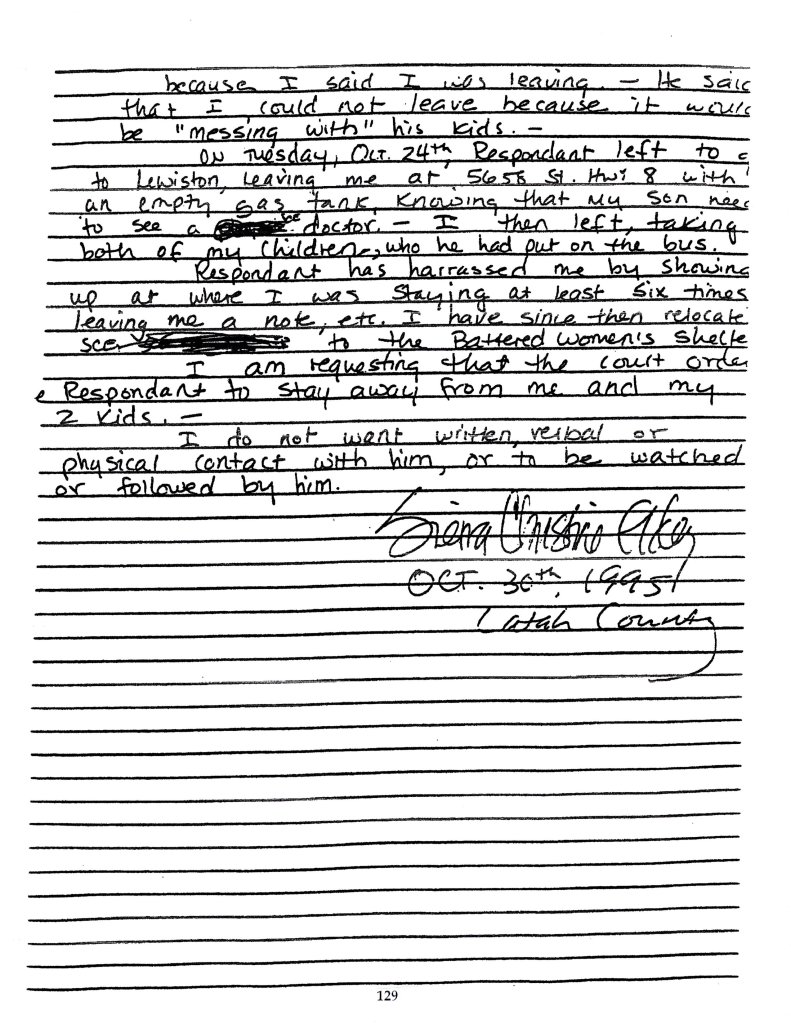 because I said I was leaving. - He said
that I could not leave because it would
be "messing with" his kids. -
ON Tuesday, Oct. 24th, Respondant left to
to Lewiston, leaving me at 5658 St. Hwy 8 with
an empty gas tank, knowing that my son need
to see a doctor. - I then left, taking
both of my children, who he had put on the bus.
Respondant has harrassed me by showing
up at where I was staying at least six times
leaving me a note, etc. I have since then relocate
to the Battered women's shelte
I am requesting that the court order
e Respondant to stay away from me and my
2 kids. -
I do not want written, verbal or
physical contact with him, or to be watched
or followed by him.
Christie
OCT. 30th, 1995
Latah County
129